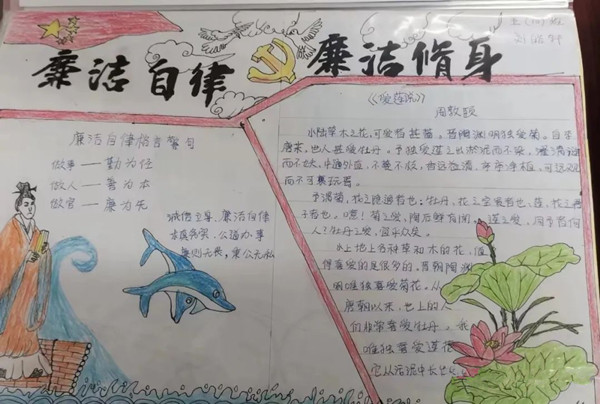 廉洁自律 廉洁修身
廉洁自律格言警句
做事——勤为径
做人——善为本
做官——廉为先
诚信立身、廉洁自律
求真务实、公道办事
无则无畏，秉公无私
《爱莲说》
周敦颐
水陆草木之花，可爱者甚蕃。晋陶渊明独爱菊。自李
唐来，世人甚爱牡丹。予独爱莲之出淤泥而不染，濯清涟
而不妖，中通外直，不蔓不枝，香远益清，亭亭净植，可远观
而不可亵玩焉。
予谓菊，花之隐逸者也；牡丹，花之富贵者也；莲，花之君
子者也。噫！菊之爱，陶后鲜有闻。莲之爱，同予者何
人？牡丹之爱，宜乎众矣。
水上地上各种草和木的花，值
得喜爱的是很多的。晋朝陶渊
明唯独喜爱菊花。从
唐朝以来，世上的人
们非常喜爱牡丹。我
唯独喜爱莲花
它从淤泥中长出